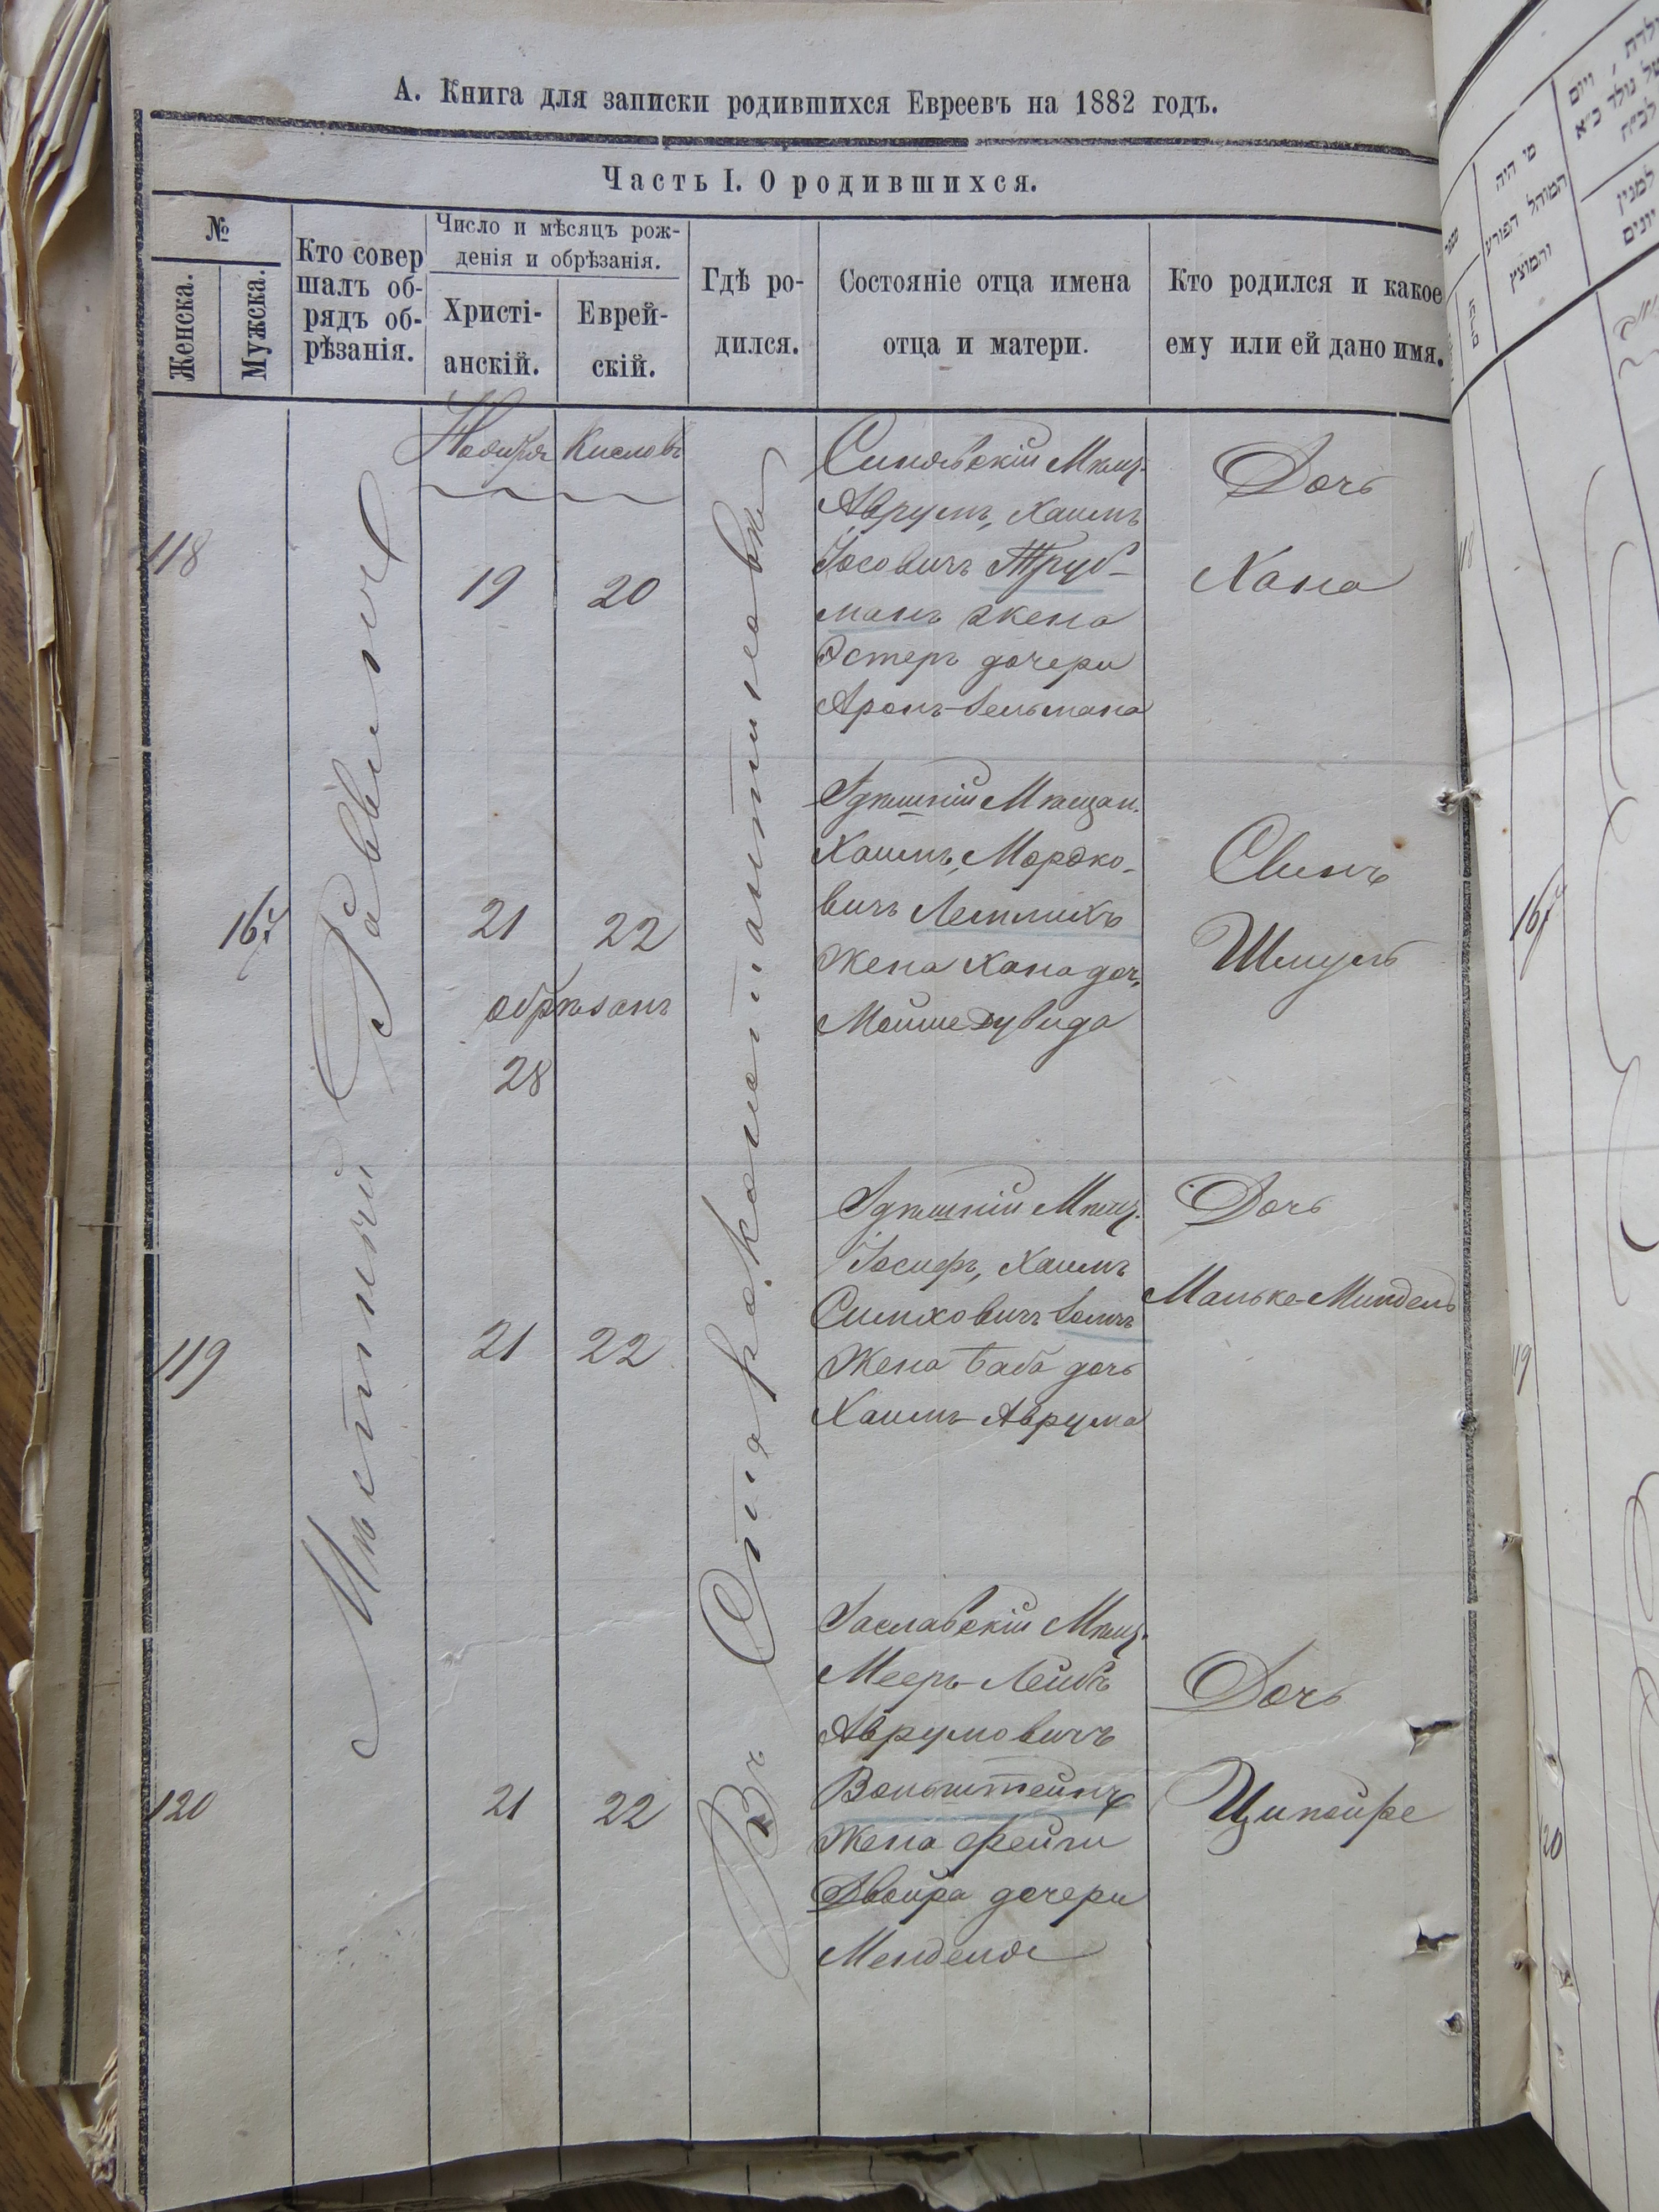 А. Книга для записки родившихся Евреевъ на 1882 годъ.
Часть I. О родившихся.
№
Женска.
Мужска.
Кто совер
шалъ об-
рядъ об-
рѣзанія.
Число и мѣсяцъ рож-
денія и обрѣзанія.
Христі-
анскій.
Еврей-
скій.
Гдѣ ро-
дился.
Состояніе отца имена
отца и матери.
Кто родился и какое
ему или ей дано имя.
Ноября
Кислевъ
Мѣстный Раввинъ
Въ Староконстантиновѣ
118
19
20
Мѣщ.
Аврумъ, Хаимъ
Іосовичъ Труб-
манъ жена
Эстеръ дочери
Аронъ-Зельмана
Дочь
Хана
167
21
22
обрѣзанъ
28
Здѣшній Мѣщан.
Хаимъ, Мордко-
вичъ
Жена Хана доч.
Мойше Дувида
Сынъ
Шмуль
119
21
22
Здѣшній Мѣщ.
Іосифъ, Хаимъ
Симховичъ
Жена Баба дочь
Хаимъ-Аврума
Дочь
Мальке-Миндель
120
21
22
Заславскій Мѣщ.
Мееръ-Лейбъ
Аврумовичъ
Вольштейнъ
Жена Фейги
Двойра дочери
Менделя
Дочь
Ципойре
מי היה
המוהל הפורע
והמוצץ
167